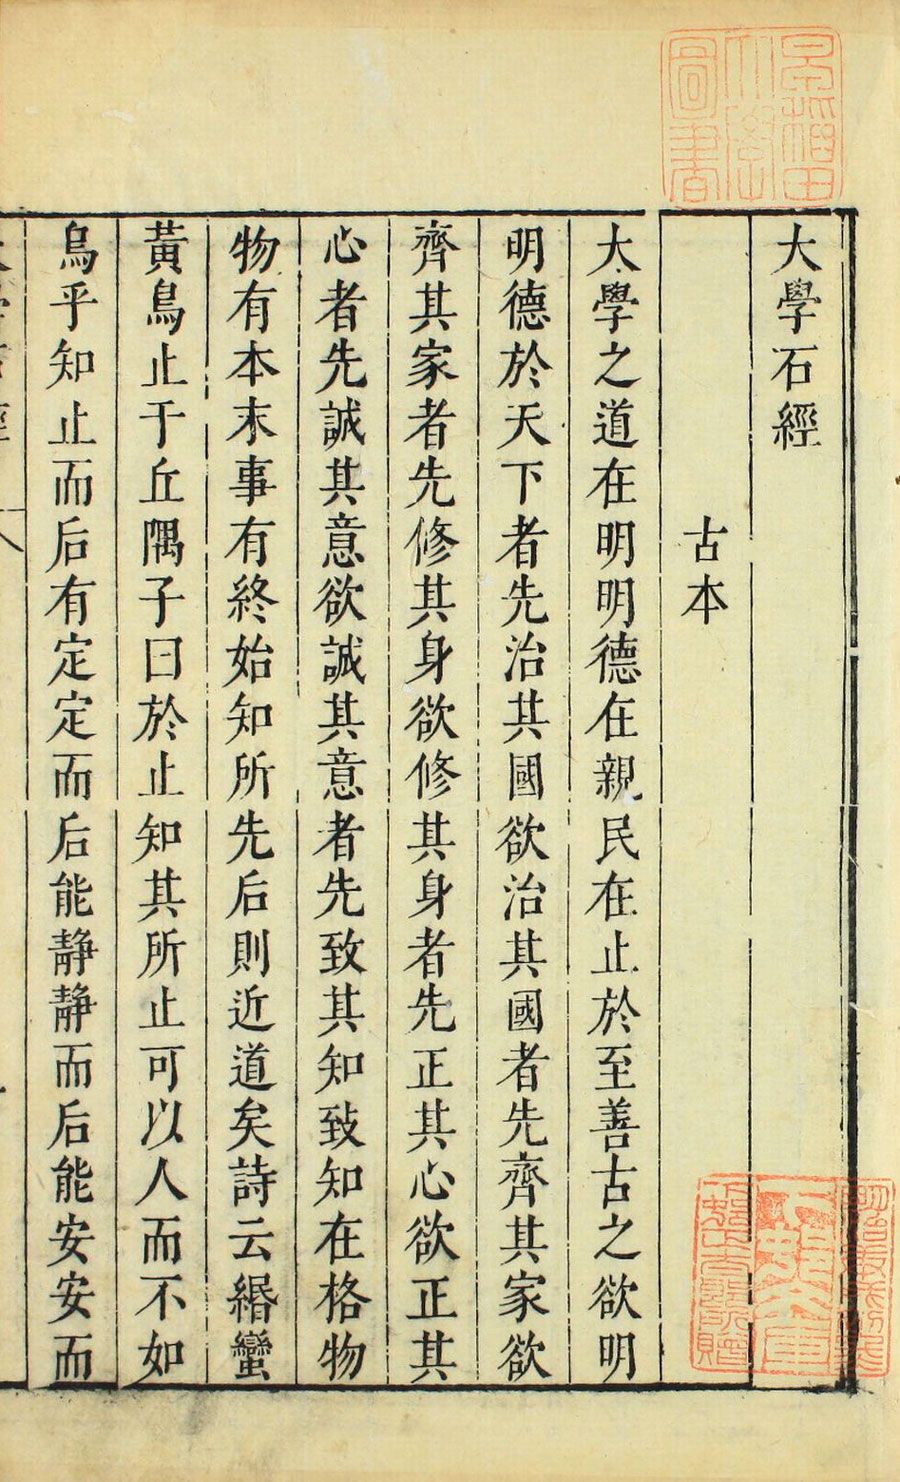 大學石經
古本
大學之道在明明德在親民在止於至善古之欲明
明德於天下者先治其國欲治其國者先齊其家欲
齊其家者先修其身欲修其身者先正其心欲正其
心者先誠其意欲誠其意者先致其知致知在格物
物有本末事有終始知所先后則近道矣詩云緡蠻
黃鳥止于丘隅子曰於止知其所止可以人而不如
鳥乎知止而后有定定而后能靜靜而后能安安而
早稻田大學圖書